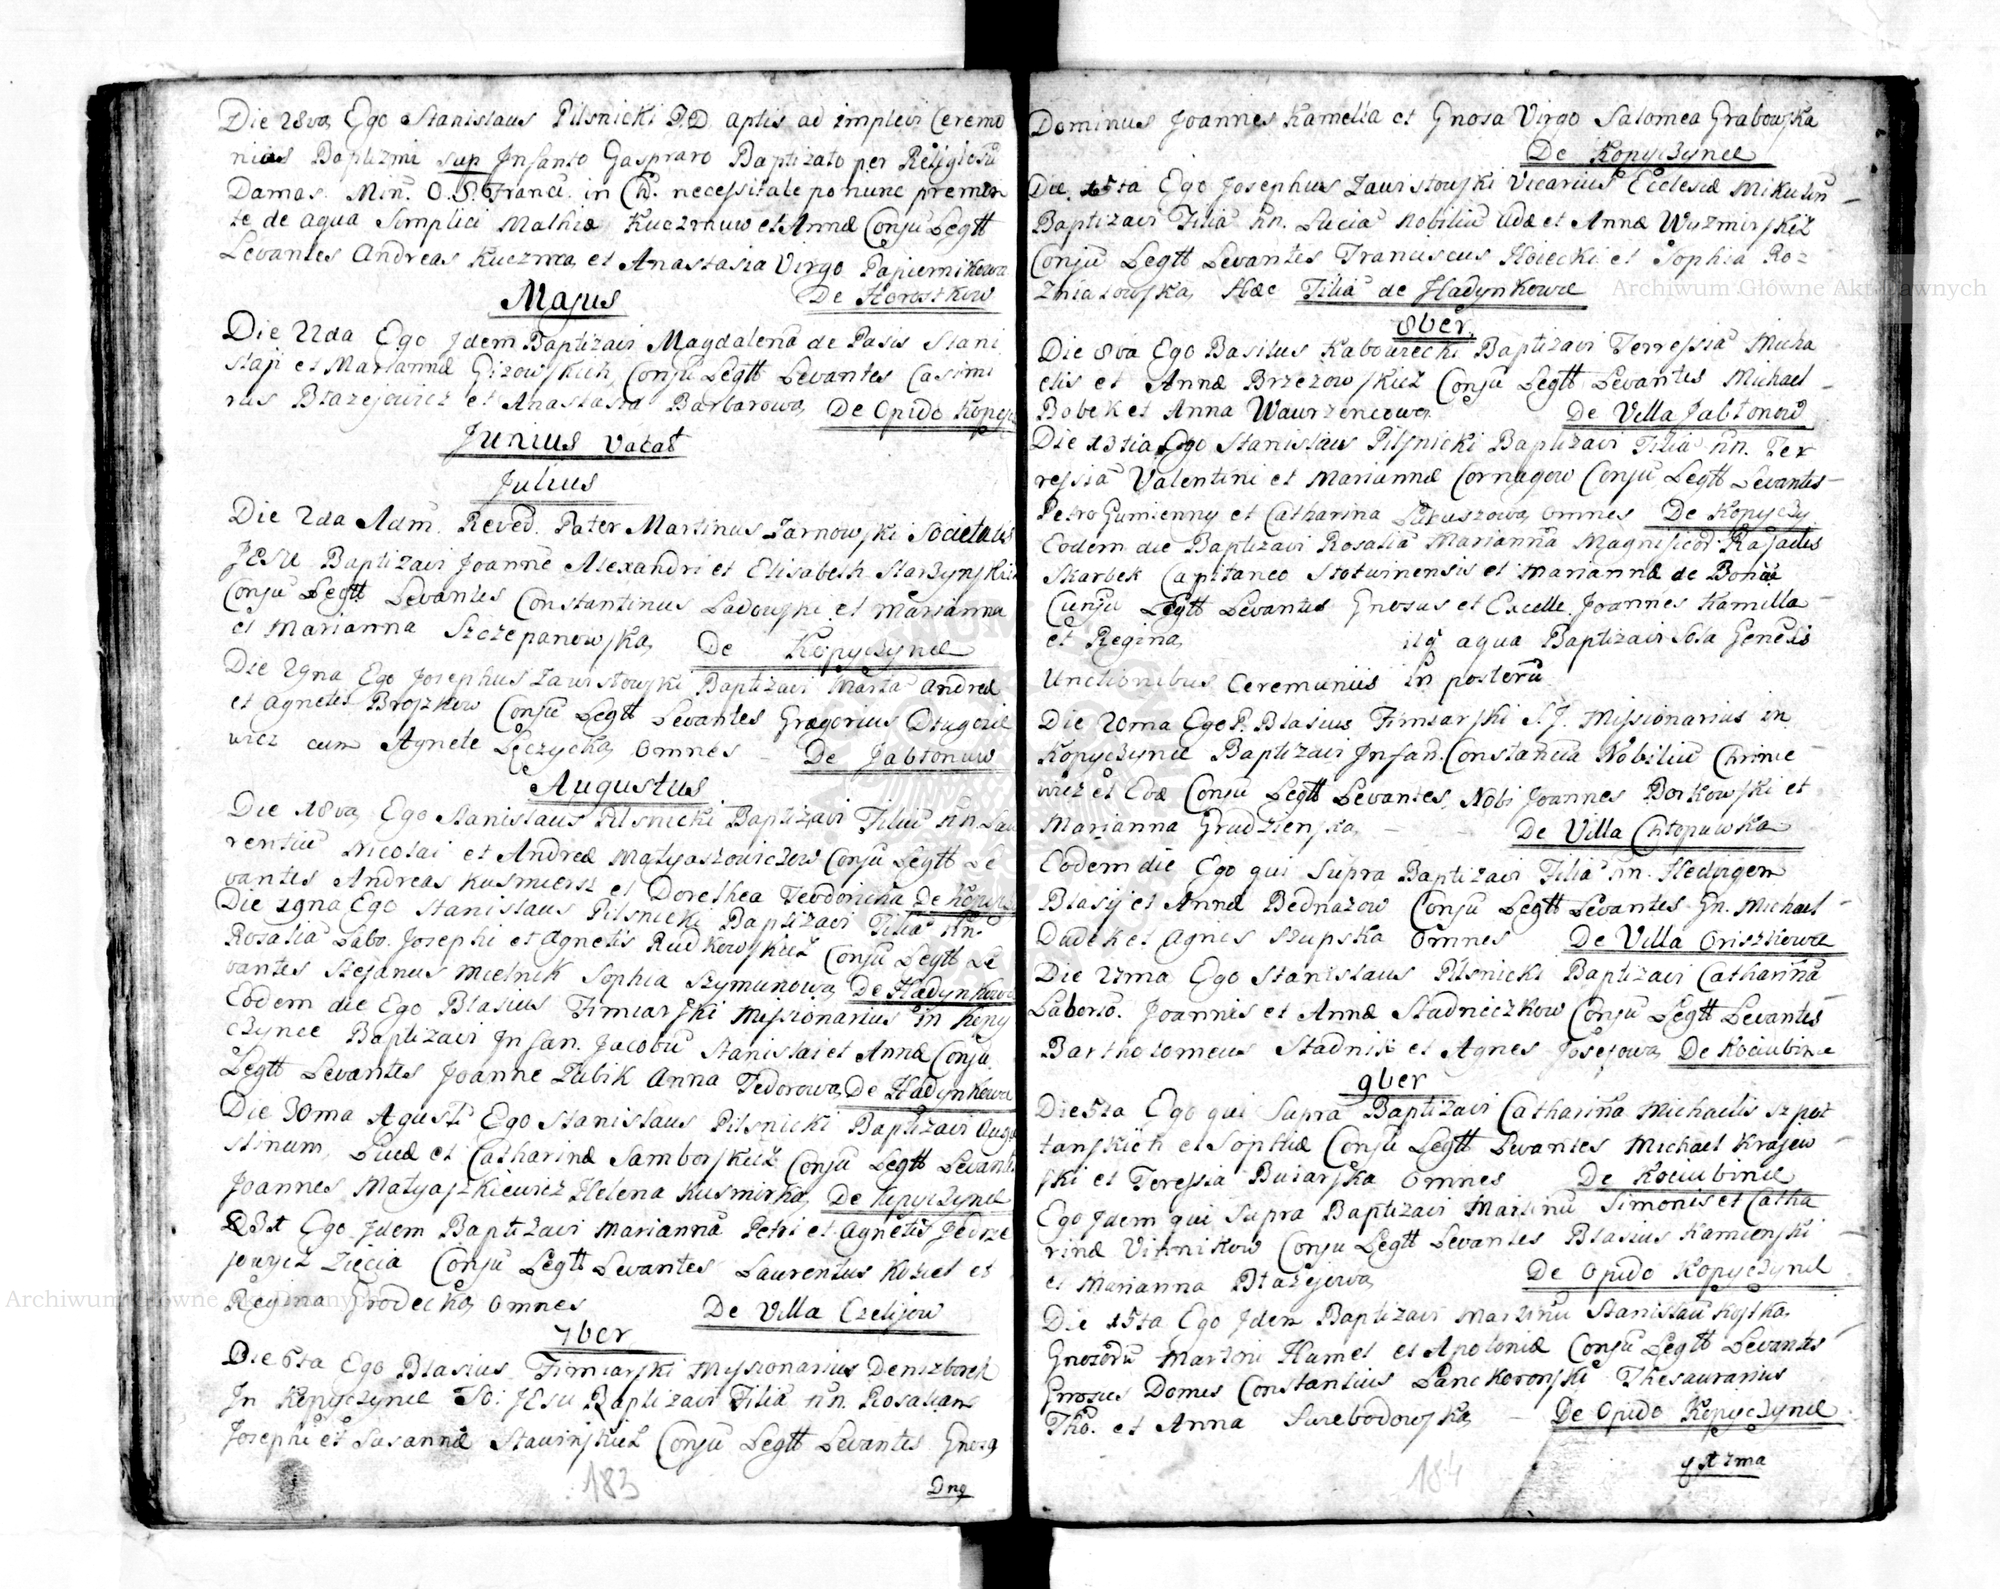 Die 28va Ego Stanislaus Pilsnicki P.D. aptis ad implevi Ceremo
nias Baptizmi sup Infanto Gaspraro Baptizato per Religiosu
Damas. Min. O.S. Franci. in necessitate po nunc premen
te de aqua Simplici Mathiæ et Annæ Conju Legtt
Levantes Andreas Kuczma et Anastasia Virgo Papiernikowa
De Horostkow
Majus
Die 22da Ego Idem Baptizavi Magdalena de Pasis Stani
slaji et Mariannæ Gizowskich Conju Legtt Levantes Casimi
rus Błazejowicz et Anastasia Barbarowa De Opido Kopyc
Junius Vacat
Julius
Die 2da Adm. Reved. Pater Martinus Tarnowski Societatis
JESU Baptizavi Joanne Alexandri et Elisabeth Starzynskich
Conju Legtt Levantes Constantinus Ladowski et Marianna
et Marianna Szczepanowska De Kopyczynce
Die 29na Ego Josephus Zawistowski Baptizavi Marta Andreæ
et Agnetis Brojzkow Conju Legtt Levantes Gregorius Długosie
wicz cum Agnete Łęczycka omnes De Jabłonuw
Augustus
Die 18va Ego Stanislaus Pilsnicki Baptizavi Filiu nn. Lau
rentiu Nicolai et Andreæ Matyaszowiczow Conju Legtt Le
vantes Andreas Kusmiersz et Dorethea Teodorina De Kopycz
Die 29na Ego Stanislaus Pilsnicki Baptizavi Filia nn.
Rosalia Labo. Josephi et Agnetis Rudkowskich Conju Legtt Le
vantes Stefanus Mielnik Sophia Szymunowa De Hadynkowce
Eodem die Ego Blasius Fimiarski Missionarius in Kopy
czynce Baptizavi Infan. Jacobu Stanislai et Annæ Conju
Legtt Levantes Joanne Zubik Anna Fedorowa De Hadynkowce
Die 30ma Agusti Ego Stanislaus Pilsnicki Baptizavi Augu
stinum, Lucæ et Catharinæ Samborskich Conju Legtt Levant
Joannes Matyaszkiewicz Helena Kusmirka De Kopyczynce
Ego Idem Baptizavi Marianna Petri et Agnetis Jedrze
jowych Ziecia Conju Legtt Levantes Laurentus Koziel et
Regina Grodecka omnes De Villa Czelijow
7ber
Die 6ta Ego Blasius Fimiarski Mysionarius
In Kopyczynce So: JESU Baptizavi Filia nn. Rosaliam
Josephi et Susannæ Stawinskich Conju Legtt Levantes Gnosq
183
Dnq
Dominus Joannes Kamelia et Gnosa Virgo Salomea Grabowska
De Kopyczynce
Die 15ta Ego Josephus Zawistowski Vicarius Ecclesiæ Mikulin
Baptizavi Filia nn. Lucia Nobiliu Adæ et Annæ Wuzmirskich
Conju Legtt Levantes Franciscus Hoiecki et Sophia Ro-
zniatowska Hæc Filia de Hadynkowce
8ber.
Die 8va Ego Basilus Kabourecki Baptizavi Terressia Micha
elis et Annæ Brzezowskich Conju Legtt Levantes Michael
Bobek et Anna Wawrzencowa De Villa Jabłonow
Die 13tia Ego Stanislaus Pilsnicki Baptizavi Filia nn. Ter
ressia Valentini et Mariannæ Cornagow Conju Legtt Levantes
Petro Gumienny et Catharina Lukuszowa omnes De Kopyczy
Eodem die Baptizavi Rosalia Marianna Magnificor Rafaelis
Skarbek Capitaneo Stotwinensis et Mariannæ de
Cunju Legtt Levantes Gnosus et Excelle. Joannes Kamilla
et Regina aqua Baptizavi Sola Genesis
Unctionibus Ceremuniis in posteru
Die 20ma Ego P. Blasius Fimiarski S.J. Missionarius in
Kopyczynce Baptizavi Infan. Constancia Nobiliu Chmie
wicz et Evæ Conju Legtt Levantes Nobi Joannes Borkowski et
Marianna Grudzienska De Villa Chłopuwka
Eodem die Ego qui Supra Baptizavi Filia nn. Hedvigem
Blasij et Annæ Bednazow Conju Legtt Levantes Gn. Michael
Dudek et Agnes Szupska omnes De Villa Oriszkowce
Die 27ma Ego Stanislaus Pilsnicki Baptizavi Catharina
Laborio. Joannis et Annæ Stadniczkow Conju Legtt Levantes
Bartholomeus Stadnik et Agnes Josefowa De Kociubince
9ber
Die 5ta Ego qui Supra Baptizavi Catharina Michaelis Szpot
tanskich et Sophiæ Conju Legtt Levantes Michael Krajew
ski et Teressia Buiarska omnes De Kociubince
Ego Idem qui Supra Baptizavi Martinu Simonis et Catha
rinæ Vitnikow Conju Legtt Levantes Blasius Kamienski
et Marianna Błażejowa De Opido Kopyczynce
Die 15ta Ego Idem Baptizavi Martinu Stanislau Kostka
Gnosoru Martini Humel et Apoloniæ Conju Legtt Levantes
Gnosus Domus Constantius Lanckoronski Thesaurarius
Tho. et Anna Swebodowska De Opido Kopyczynce
184
Archiwum Główne Akt Dawnych
Archiwum Główne Akt Dawnych